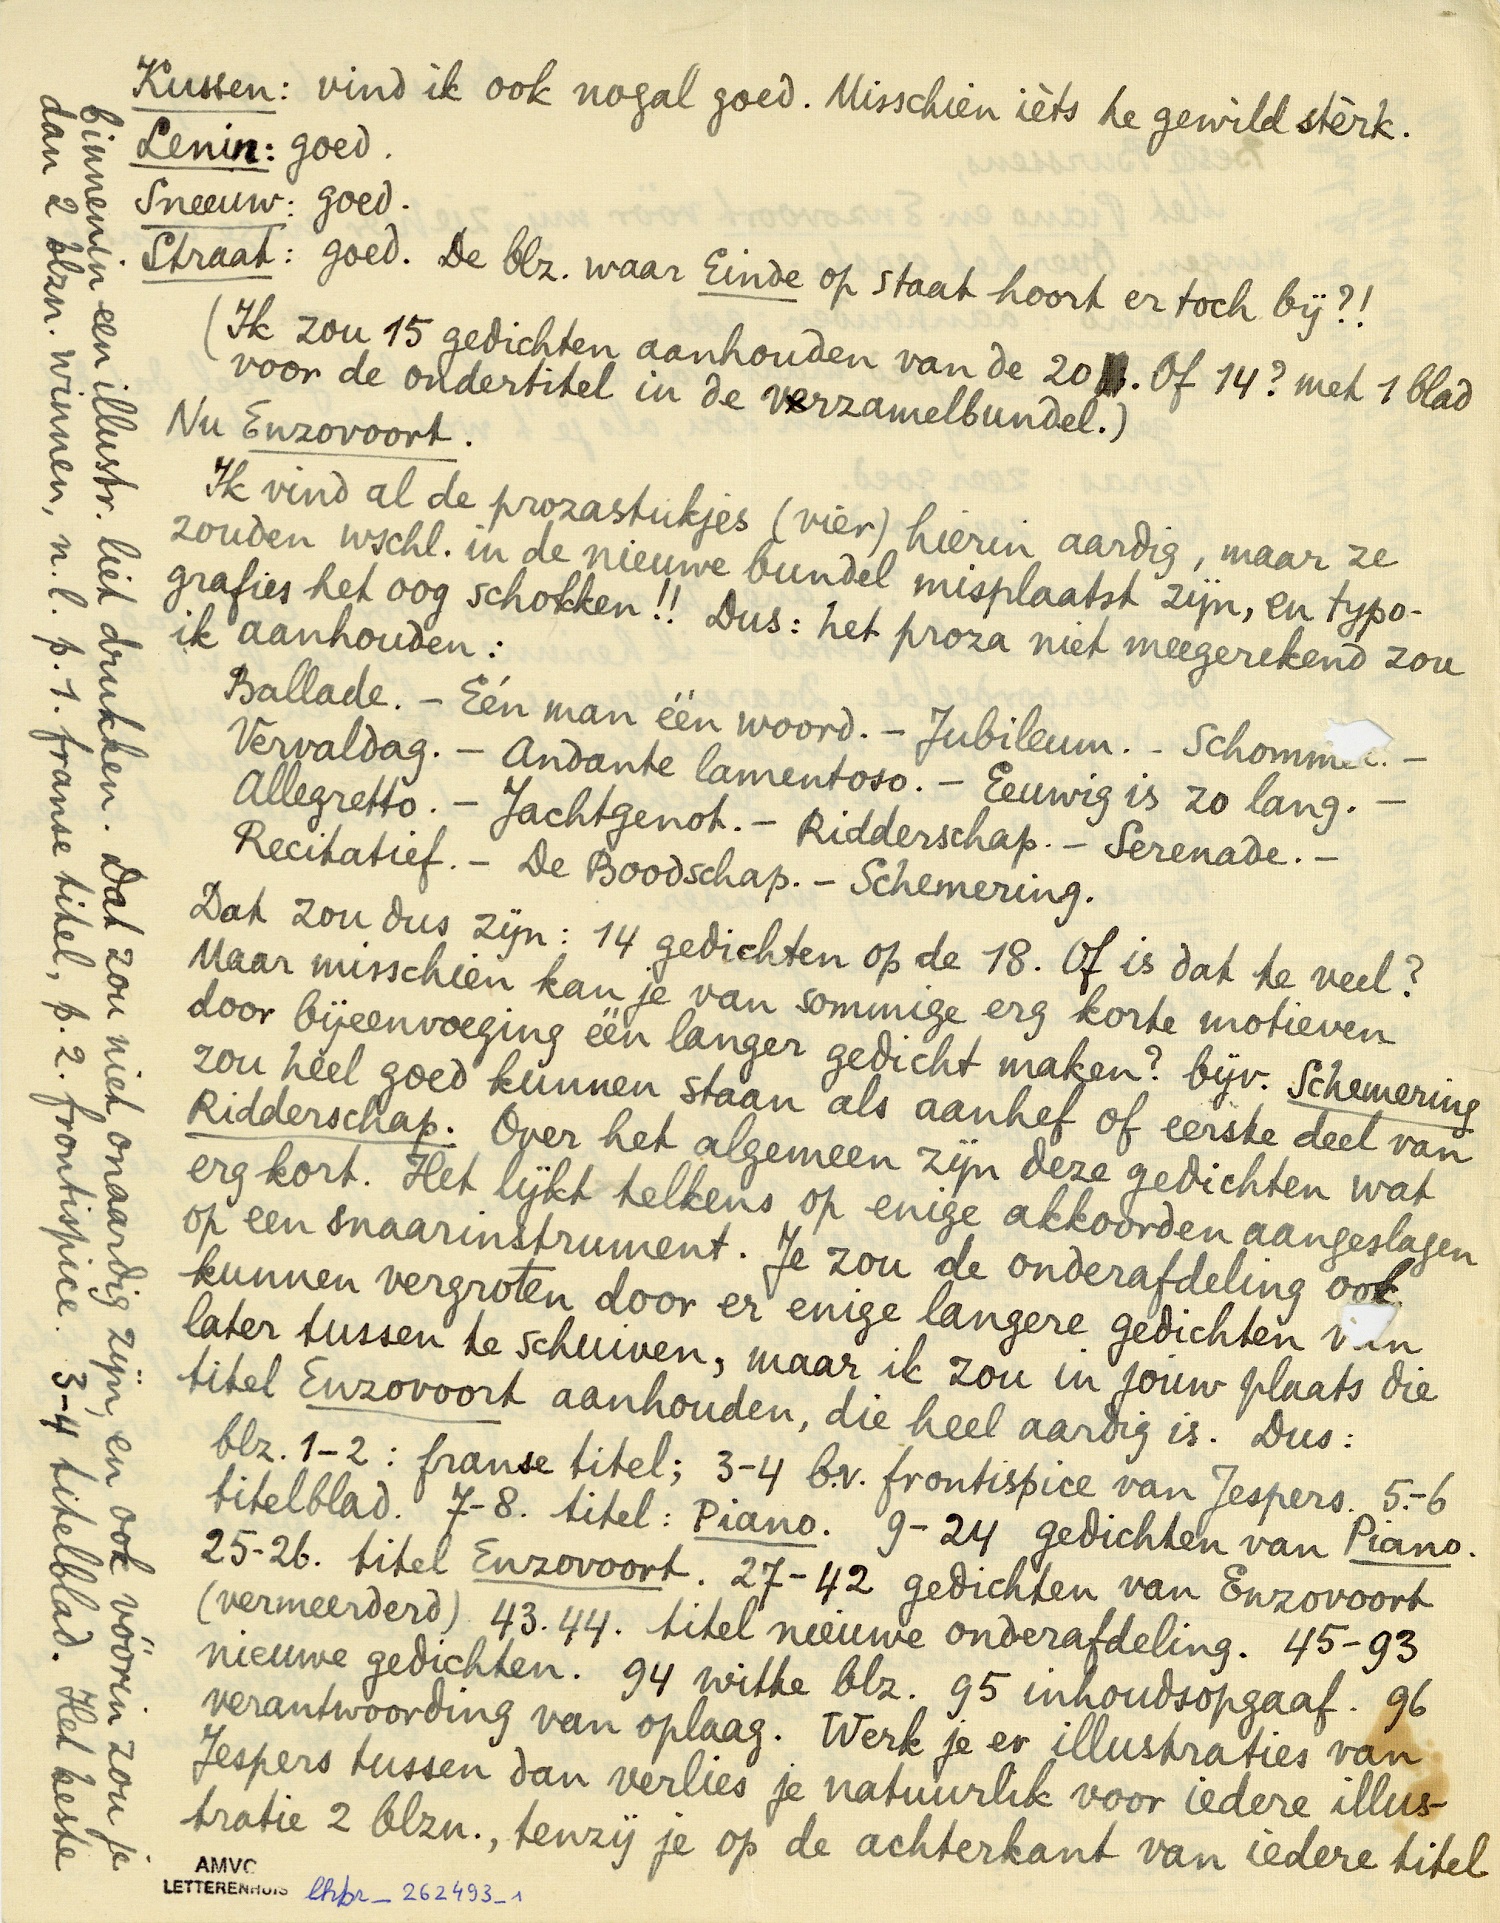 Kussen: vind ik ook nogal goed. Misschien ièts te gewild stèrk.
Lenin: goed.
Sneeuw: goed.
Straat: goed. De blz. waar Einde op staat hoort er toch bij?!
(Ik zou 15 gedichten aanhouden van de 20. Of 14? met 1 blad
voor de ondertitel in de verzamelbundel.)
Nu Enzovoort.
Ik vind al de prozastukjes (vier) hierin aardig, maar ze
zouden wschl. in de nieuwe bundel misplaatst zijn, en typo-
grafies het oog schokken!! Dus: het proza niet meegerekend zou
ik aanhouden:
Ballade. – Eén man één woord. – Jubileum. – Schommel. –
Vervaldag. – Andante lamentoso. – Eeuwig is zo lang. –
Allegretto. – Jachtgenot. – Ridderschap. – Serenade. –
Recitatief. – De Boodschap. – Schemering.
Dat zou dus zijn: 14 gedichten op de 18. Of is dat te veel?
Maar misschien kan je van sommige erg korte motieven
door bijeenvoeging één langer gedicht maken? bijv. Schemering
zou heel goed kunnen staan als aanhef of eerste deel van
Ridderschap. Over het algemeen zijn deze gedichten wat
erg kort. Het lijkt telkens op enige akkoorden aangeslagen
op een snaarinstrument. Je zou de onderafdeling ook
kunnen vergroten door er enige langere gedichten van
later tussen te schuiven, maar ik zou in jouw plaats die
titel Enzovoort aanhouden, die heel aardig is. Dus:
blz. 1–2: franse titel; 3–4 b.v. frontispice van Jespers. 5.–6
titelblad. 7–8. titel: Piano. 9–24 gedichten van Piano.
25-26. titel Enzovoort. 27–42 gedichten van Enzovoort
(vermeerderd) 43.44. titel nieuwe onderafdeling. 45–93
nieuwe gedichten. 94 witte blz. 95 inhoudsopgaaf. 96
verantwoording van oplaag. Werk je er illustraties van
Jespers tussen dan verlies je natuurlik voor iedere illus-
tratie 2 blzn., tenzij je op de achterkant van iedere titel
binnenin een illustr. liet drukken. Dat zou niet onaardig zijn, en ook vóórin zou je
dan 2 blzn. winnen, n.l. p.1. franse titel, p.2. frontispice. 3–4 titelblad. Het beste
AMVC
LETTERENHUIS
lhpr_262493_1